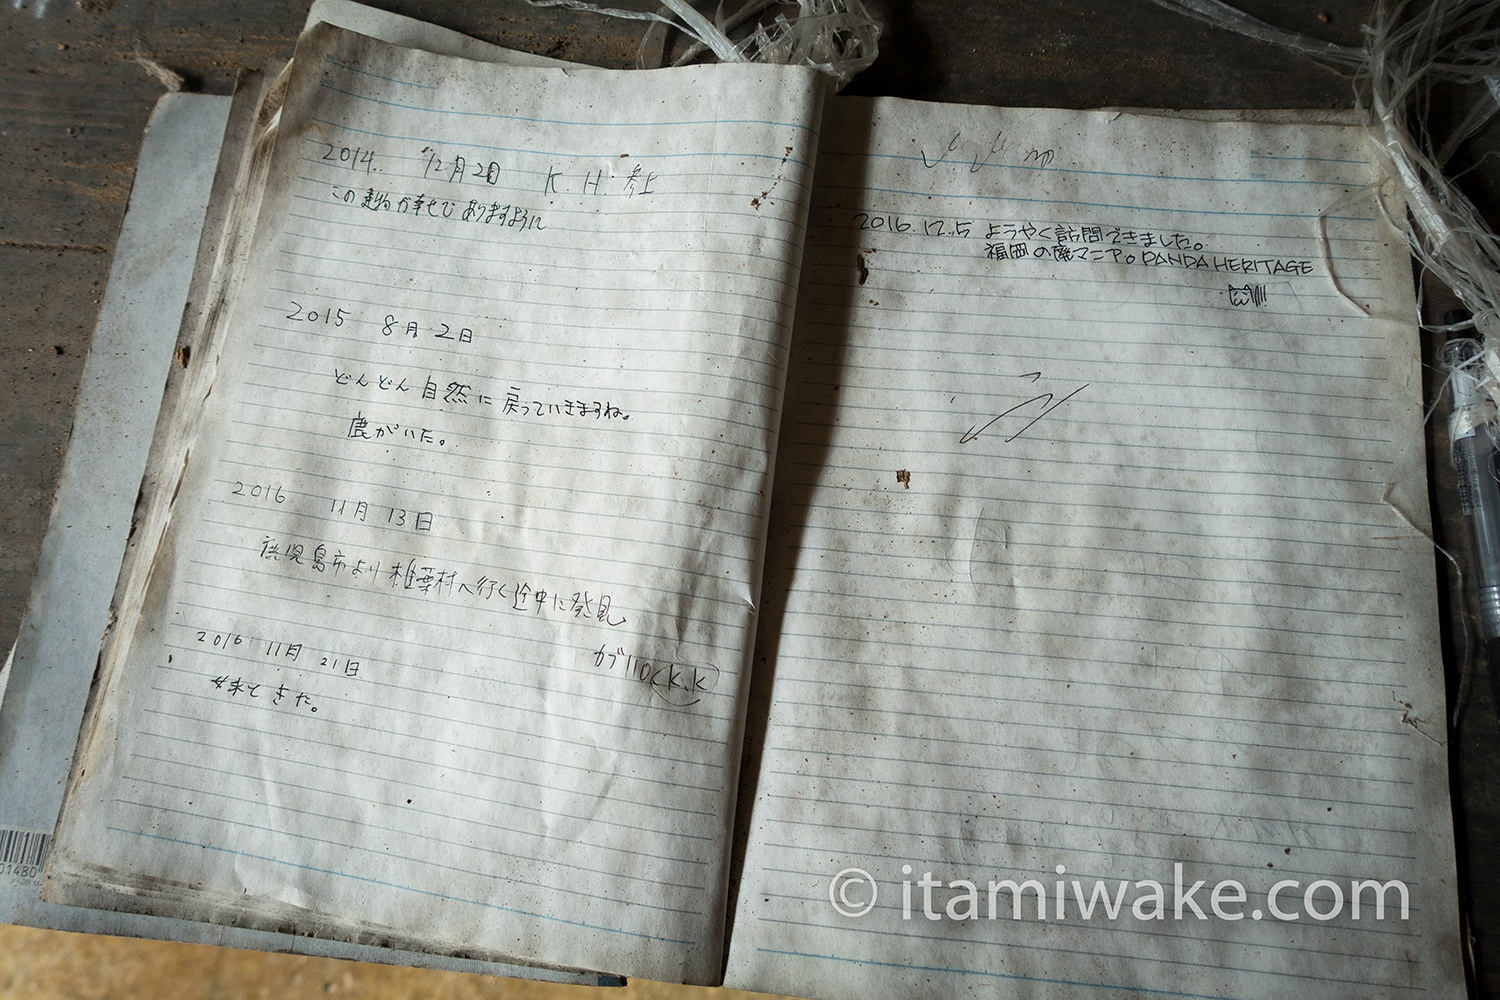 2014. 12月2日 K.H. 参上
この建物が幸せで ありますように
2015 8月2日
どんどん自然に戻っていきますね。
鹿がいた。
2016 11月13日
鹿児島市より椎葉村へ行く途中に発見
カブ110 K.K
2016 11月 21日
きた。
2016.12.5 ようやく訪問できました。
福岡の廃マニア。PANDA HERITAGE
01480
© itamiwake.com